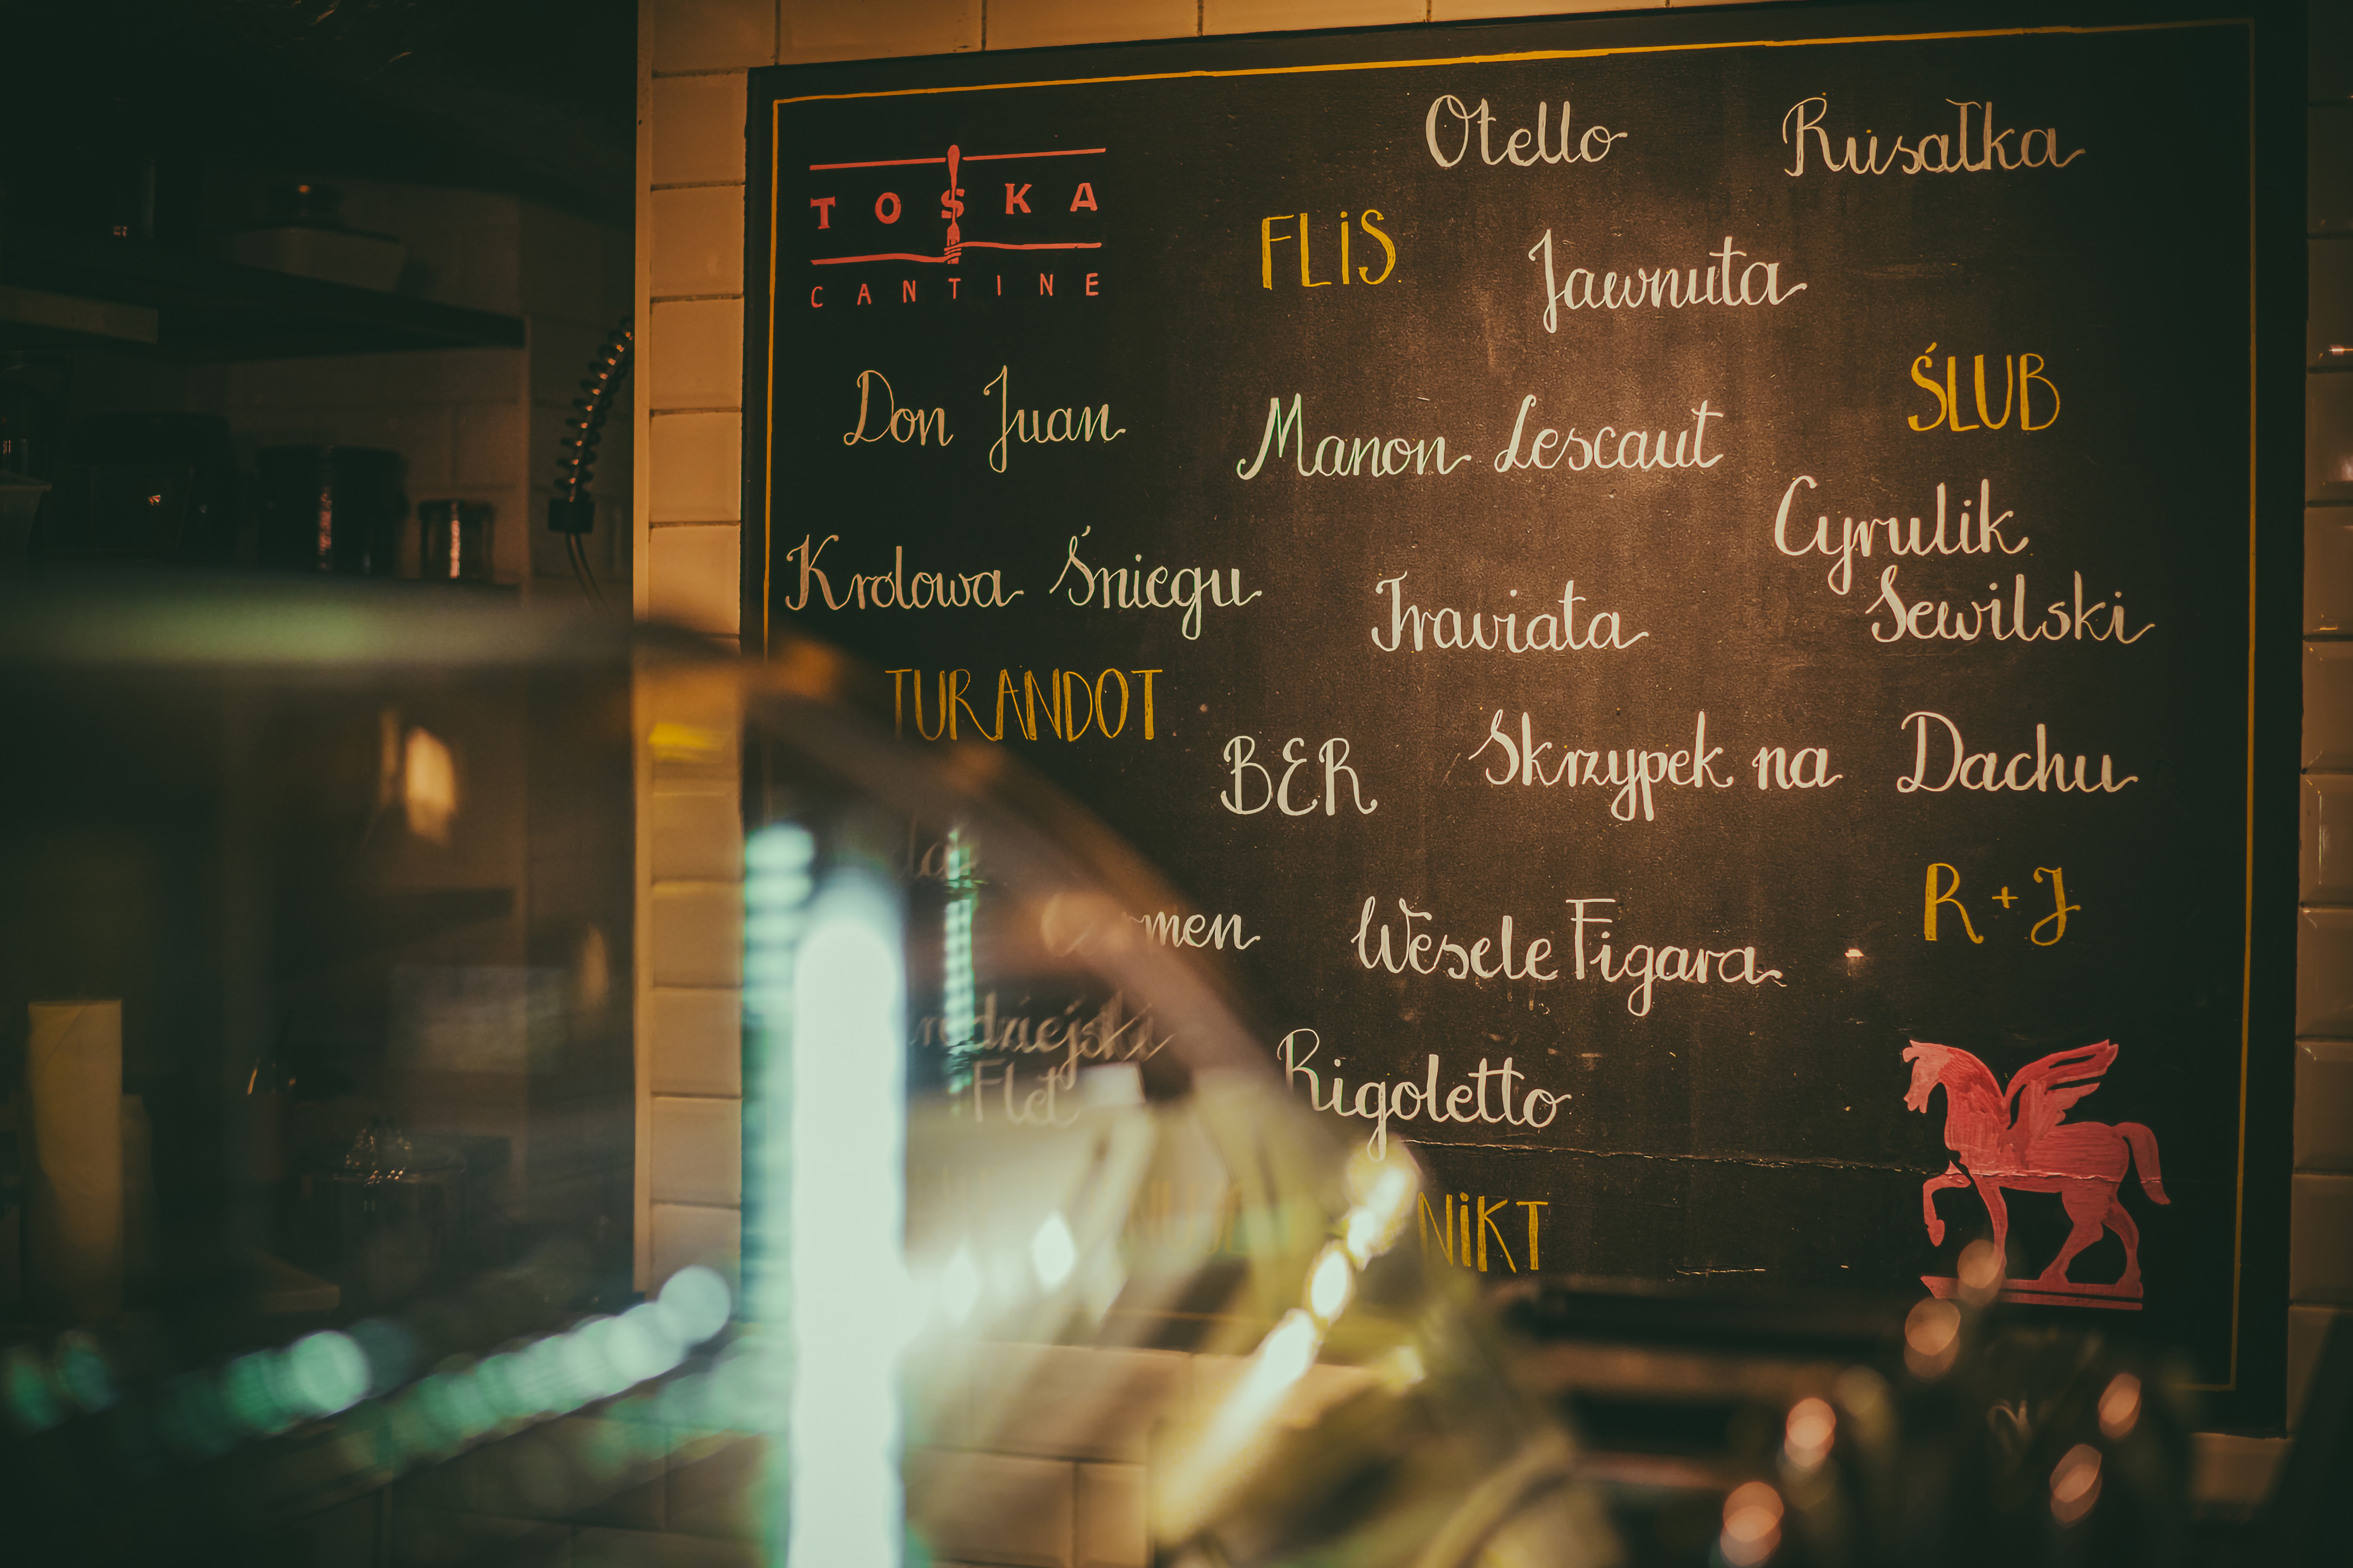 Otello Rusałka
TOSKA
CANTINE
FLiS
Jawnuta
ŚLUB
Don Juan
Manon Lescaut
Cyrulik
Sewilski
Krolowa Śniegu
Traviata
TURANDOT
BER
Skrzypek na Dachu
R+J
Wesele Figara
Flet
Rigoletto
NiKT